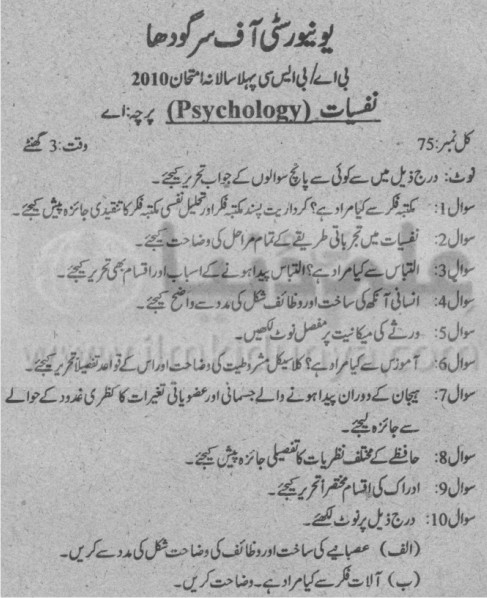 یونیورسٹی آف سرگودھا
بی اے/بی ایس سی پہلا سالانہ امتحان 2010
نفسیات (Psychology) پرچہ: اے
کل نمبر: 75 وقت: 3 گھنٹے
نوٹ: درج ذیل میں سے کوئی سے پانچ سوالوں کے جواب تحریر کیجئے۔
سوال 1: مکتبہ فکر سے کیا مراد ہے؟ کرداریت پسند مکتبہ فکر اور تحلیل نفسی مکتبہ فکر کا تنقیدی جائزہ پیش کیجئے۔
سوال 2: نفسیات میں تجرباتی طریقے کے تمام مراحل کی وضاحت کیجئے۔
سوال 3: التباس سے کیا مراد ہے؟ التباس پیدا ہونے کے اسباب اور اقسام بھی تحریر کیجئے۔
سوال 4: انسانی آنکھ کی ساخت اور وظائف شکل کی مدد سے واضح کیجئے۔
سوال 5: ورثے کی میکانیت پر مفصل نوٹ لکھیں۔
سوال 6: آموزش سے کیا مراد ہے؟ کلاسیکل مشروطیت کی وضاحت اور اس کے قواعد تفصیلاً تحریر کیجئے۔
سوال 7: ہیجان کے دوران پیدا ہونے والے جسمانی اور عضویاتی تغیرات کا کظری غدود کے حوالے
سے جائزہ لیجئے۔
سوال 8: حافظے کے مختلف نظریات کا تفصیلی جائزہ پیش کیجئے۔
سوال 9: ادراک کی اقسام مختصراً تحریر کیجئے۔
سوال 10: درج ذیل پر نوٹ لکھئے۔
(الف) عصبانیے کی ساخت اور وظائف کی وضاحت شکل کی مدد سے کریں۔
(ب) آلات فکر سے کیا مراد ہے۔ وضاحت کریں۔